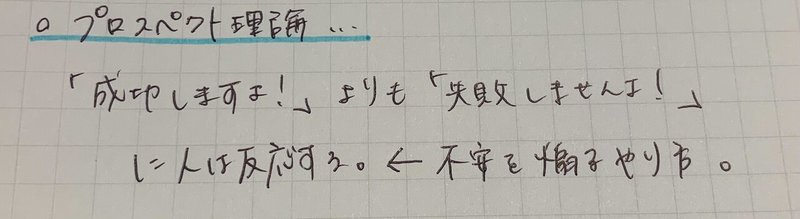 ○ プロスペクト理論 …
「成功しますよ!」よりも「失敗しませんよ!」
に人は反応する。← 不安を煽るやり方。